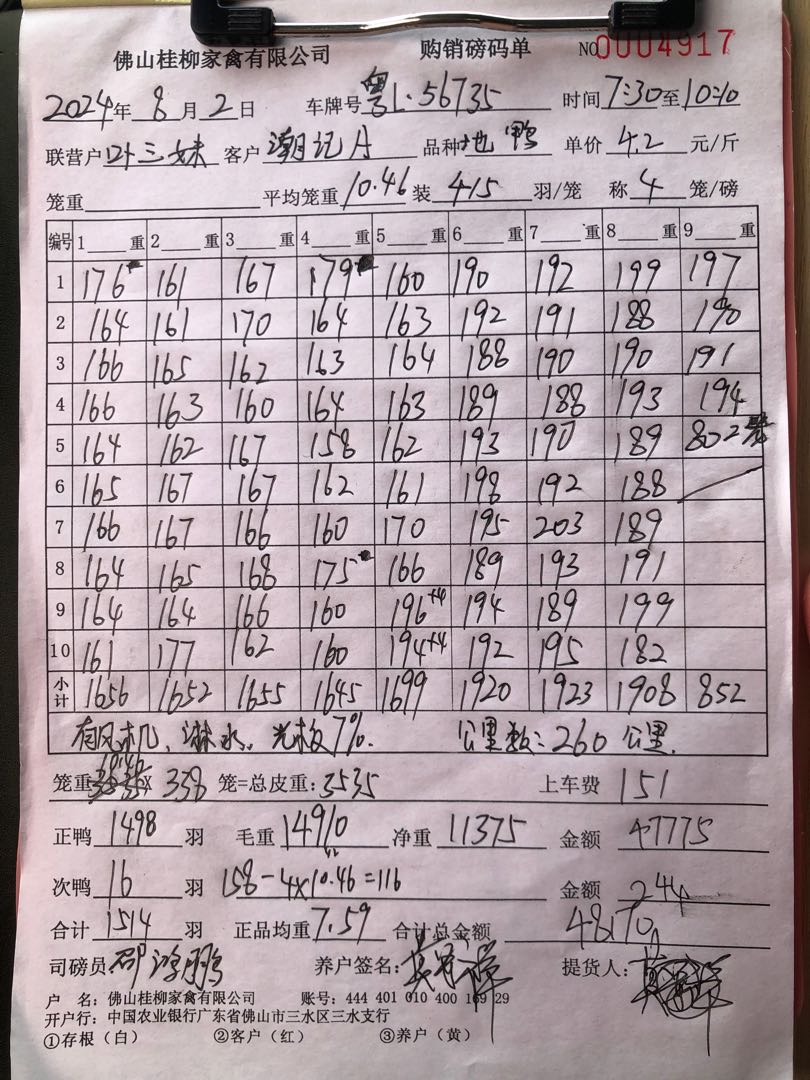 佛山桂柳家禽有限公司 购销磅码单 NO 0004917
2024年 8 月 2 日 车牌号 粤L·56735 时间 7:30 至 10:10
联营户 叶三妹 客户 潮记A 品种 地鸭 单价 4.2 元/斤
笼重 平均笼重 10.46 装 4/5 羽/笼 称 4 笼/磅
编号 1 重 2 重 3 重 4 重 5 重 6 重 7 重 8 重 9 重
1 176 161 167 179 160 190 192 199 197
2 164 161 170 164 163 192 191 188 190
3 166 165 162 163 164 188 190 190 191
4 166 163 160 164 163 189 188 193 194
5 164 162 167 158 162 193 190 189 80 2
6 165 167 167 162 161 198 192 188
7 166 167 166 160 170 195 203 189
8 164 165 168 175 166 189 193 191
9 164 164 166 160 196+4 194 189 199
10 161 177 162 160 194+4 192 195 182
小计 1656 1652 1655 1645 1699 1920 1923 1908 852
有风机、淋水、光板7%. 公里数:260公里.
笼重 10.46 X 338 笼=总皮重:3535 上车费 151
正鸭 1498 羽 毛重 14910 净重 11375 金额 47775
次鸭 16 羽 158-4×10.46=116 金额 244
合计 1514 羽 正品均重 7.59 合计总金额 48170
司磅员 邵鸿鹏 养户签名: 提货人:
户 名:佛山桂柳家禽有限公司 账号:444 401 010 400 169 29
开户行:中国农业银行广东省佛山市三水区三水支行
①存根(白) ②客户(红) ③养户(黄)